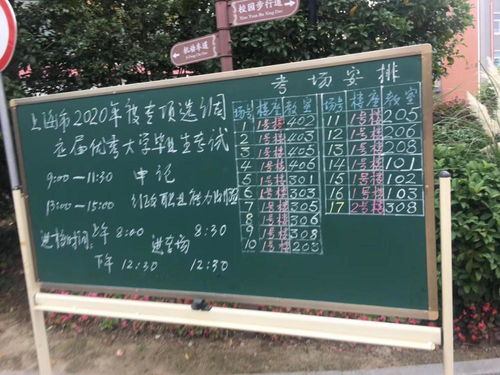 校园步行道
机动车道
上海市2020年度专项选调
应届优秀大学毕业生考试
9:00—11:30 申论
13:00—15:00 行政职业能力测验
进校时间:上午 8:00 进考场 8:30
下午 12:30 12:30
考场安排
场号 楼座 教室 场号 楼座 教室
1 1号楼 402 11 1号楼 205
2 1号楼 403 12 1号楼 206
3 1号楼 405 13 1号楼 208
4 1号楼 406 14 1号楼 101
5 1号楼 301 15 1号楼 102
6 1号楼 303 16 1号楼 103
7 1号楼 305 17 2号楼 308
8 1号楼 306
9 1号楼 308
10 1号楼 203